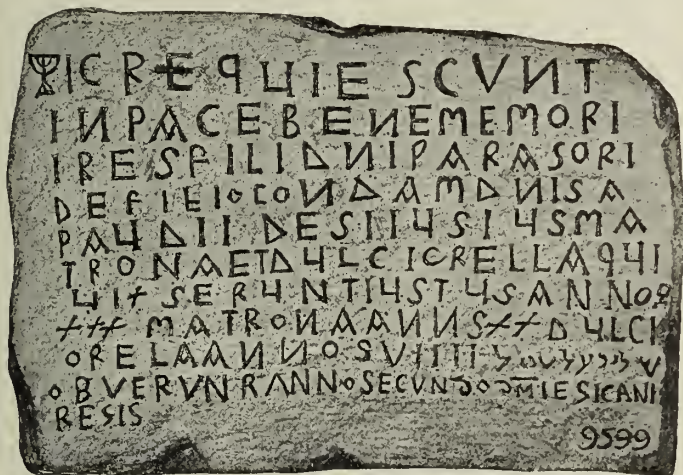 IC REQUIESCUNT
IN PACE BENE MEMORI
IRES FILI DNI PARASORI
DE FIEIO CONDAM DNI SA
PAUDI I DE S IIUSIUS MA
TRONA ET DULCICRELLA QUI
UIXSERUNT IUSTUS ANNOS
XXX MATRONA ANNS XX DULCI
ORELA ANNOS VIIII שלום על
OBVERUN R ANNO SECUNDO DMI ESICANI
RESIS
9599